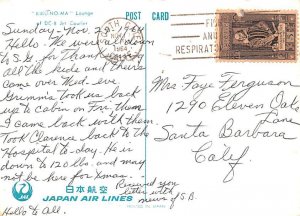 "KIKU-NO-MA" Lounge
of DC-8 Jet Courier
POST CARD
Sunday - Nov. 29, '64
Hello. We were all down
to S.B. for Thanksgiving
All the kids and theirs
came over Wed. eve.
Grimm's took us back
up to cabin on Fri. Then
I came back with them.
Took Clarence back to the
Hospital to-day. He is
down to 120 lbs and may
not be here for Xmas.
Received your
letter with
news of S.B.
Hello to All.
日本航空
JAPAN AIR LINES
JAL
PRINTED IN JAPAN
NOV
1964
RESPIRATORY
Mrs. Faye Ferguson
1290 Eleven Oaks
Lane
Santa Barbara
Calif